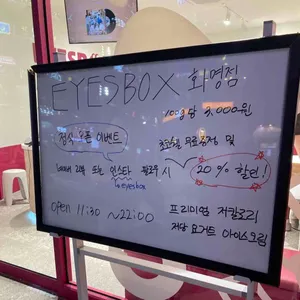 EYESBOX 화명점
100g당 3,000원
정식 오픈 이벤트
초코쉘 무료증정 및
네이버 리뷰 또는 인스타 팔로우 시 20% 할인!
eyesbox
open 11:30 ~22:00
프리미엄 저칼로리
저당 요거트 아이스크림